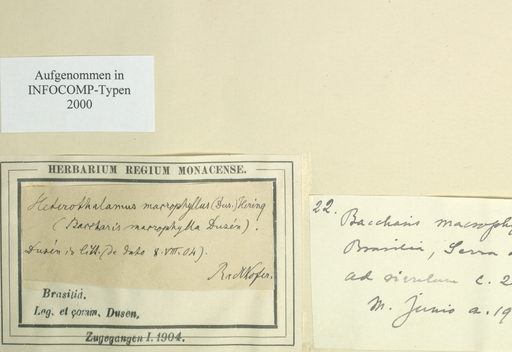 Aufgenommen in
INFOCOMP-Typen
2000
HERBARIUM REGIUM MONACENSE.
Heterothalamus macrophyllus (Dus.) Hering
(Baccharis macrophylla Dusén).
Dusén in litt. (de dato 8.VIII.04).
Radlkofer.
Brasilia.
Leg. et comm. Dusen.
Zugegangen I. 1904.
22.
Baccharis macrophy
Brasilia, Serra
ad rivulum c. 2
M. Junio a. 19